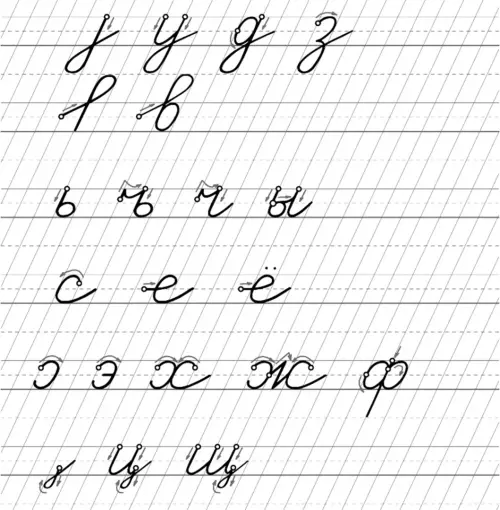 у д з
в
ь ъ ч ы
с е ё
э х ж ф
ц щ